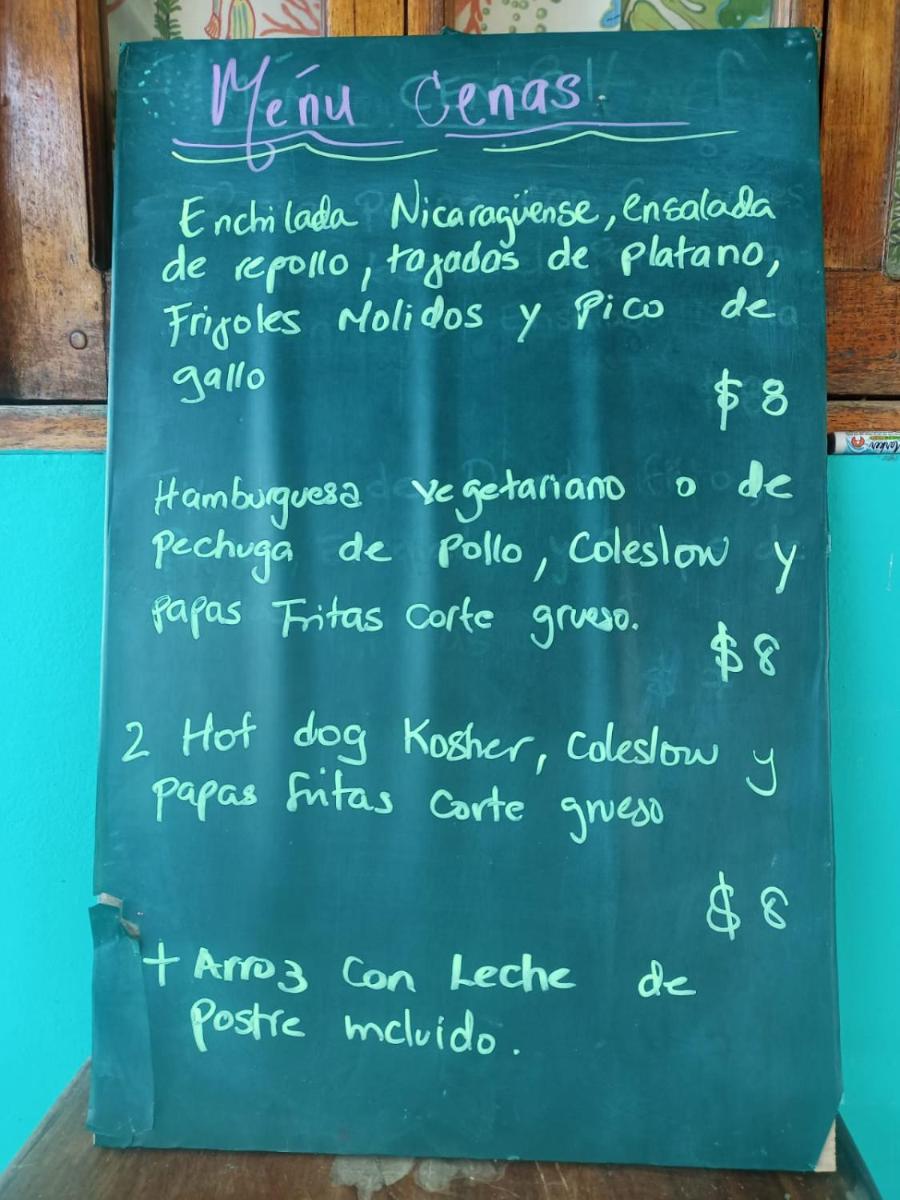 Menú Cenas
Enchilada Nicaragüense, ensalada
de repollo, tajadas de Platano,
Frijoles Molidos y Pico de
gallo
$ 8
Hamburguesa vegetariano o de
Pechuga de Pollo, Coleslow y
papas Fritas Corte grueso.
$ 8
2 Hot dog Kosher, Coleslow y
papas fritas Corte grueso
$ 8
+ Arroz Con Leche de
Postre incluido.